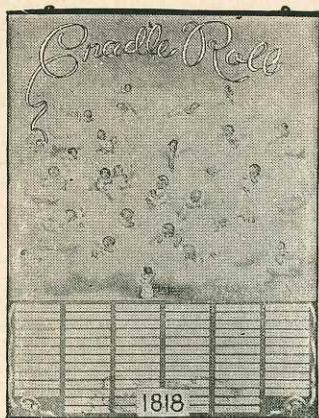 Cradle Roll
1818